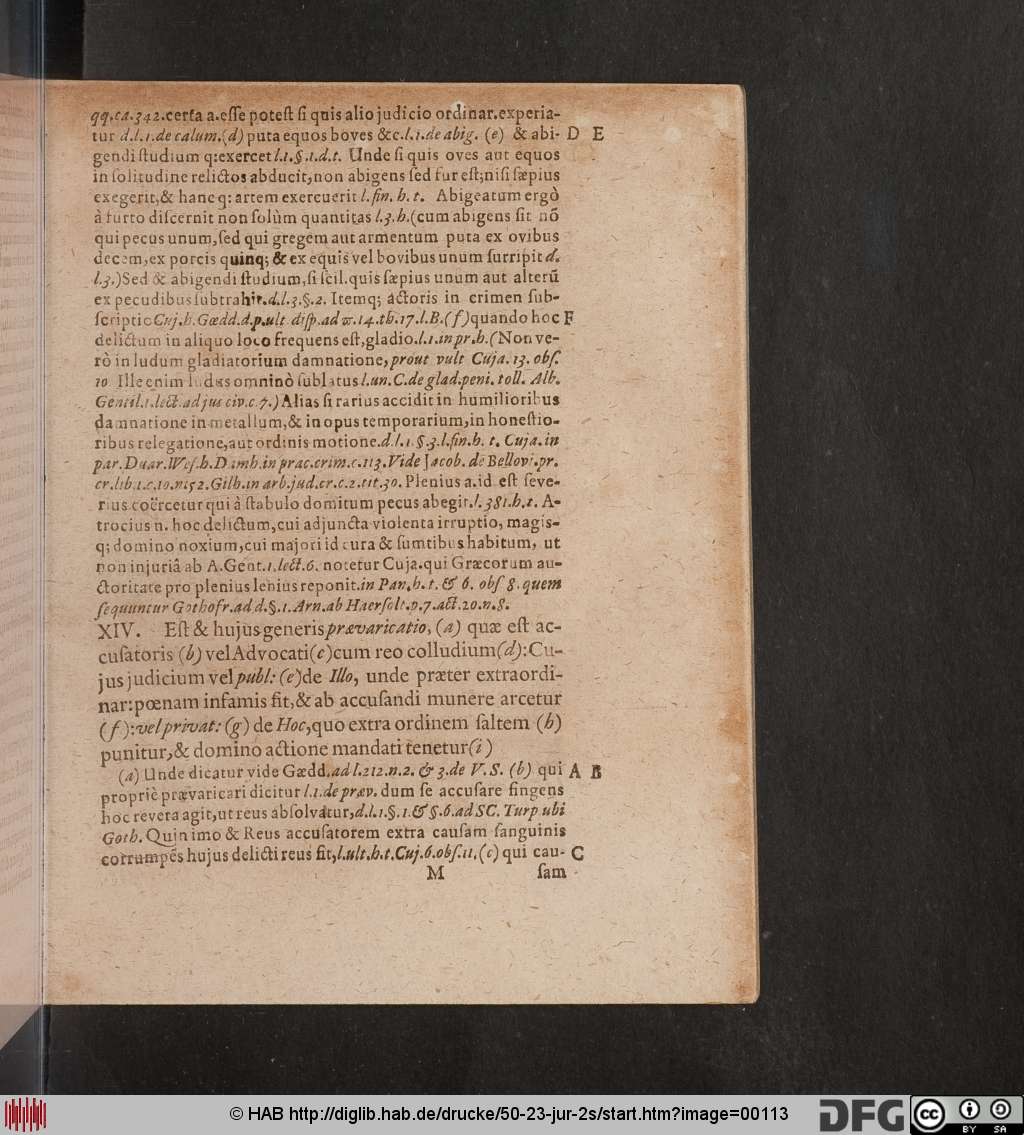 qq.ca.342.certa a.eſſe poteſt ſi quis alio judicio ordinar.experia-
tur d.l.1.de calum.(d) puta equos boves &c.l.1.de abig. (e) & abi- D E
gendi ſtudium q:exercet l.1.§.1.d.t. Unde ſi quis oves aut equos
in ſolitudine relictos abducit,non abigens ſed fur eſt;niſi ſæpius
exegerit,& hanc q: artem exercuerit l.fin. h. t. Abigeatum ergò
à furto diſcernit non ſolùm quantitas l.3.h.(cum abigens ſit nō
qui pecus unum,ſed qui gregem aut armentum puta ex ovibus
decem,ex porcis quinq; & ex equis vel bovibus unum ſurripit d.
l.3.)Sed & abigendi ſtudium,ſi ſcil.quis ſæpius unum aut alterū
ex pecudibus ſubtrahit.d.l.3.§.2. Itemq; actoris in crimen ſub-
ſcriptio Cuj.h.Gœdd.d.p.ult diſp.ad w.14.th.17.l.B.(f)quando hoc F
delictum in aliquo loco frequens eſt,gladio.l.1.in pr.h.(Non ve-
rò in ludum gladiatorium damnatione,prout vult Cuja.13. obſ.
10 Ille enim ludus omninò ſublatus l.un.C.de glad.peni. toll. Alb.
Gentil.1.lect.ad jus civ.c.7.) Alias ſi rarius accidit in humilioribus
damnatione in metallum,& in opus temporarium,in honeſtio-
ribus relegatione,aut ordinis motione.d.l.1.§.3.l.fin.h. t. Cuja.in
par.Duar.Weſ.h.Damh.in prac.crim.c.113.Vide Jacob. de Bellovi.pr.
cr.lib.1.c.10.n152.Gilh.in arb.jud.cr.c.2.tit.30. Plenius a.id eſt ſeve-
rius coërcetur qui à ſtabulo domitum pecus abegit.l.381.h.t. A-
trocius n. hoc delictum,cui adjuncta violenta irruptio, magis-
q; domino noxium,cui majori id cura & ſumtibus habitum, ut
non injuriâ ab A.Gent.1.lect.6. notetur Cuja.qui Græcorum au-
ctoritate pro plenius lenius reponit.in Par.h.t. & 6. obſ 8. quem
ſequuntur Gothofr.ad d.§.1.Arn.ab Haerſolt.p.7.act.20.n.8.
XIV. Eſt & hujus generis prævaricatio, (a) quæ eſt ac-
cuſatoris (b) vel Advocati(c)cum reo colludium(d):Cu-
jus judicium vel publ: (e)de Illo, unde præter extraordi-
nar:pœnam infamis fit,& ab accuſandi munere arcetur
(f):vel privat: (g) de Hoc,quo extra ordinem ſaltem (h)
punitur,& domino actione mandati tenetur(i)
(a) Unde dicatur vide Gædd.ad l.212.n.2. & 3.de V.S. (b) qui A B
propriè prævaricari dicitur l.1.de præv. dum ſe accuſare fingens
hoc revera agit,ut reus abſolvatur,d.l.1.§.1.& §.6.ad SC. Turp ubi
Goth. Quin imo & Reus accuſatorem extra cauſam ſanguinis
corrumpēs hujus delicti reus fit,l.ult.h.t.Cuj.6.obſ.11.(c) qui cau- C
M ſam
© HAB http://diglib.hab.de/drucke/50-23-jur-2s/start.htm?image=00113
DFG
cc BY SA